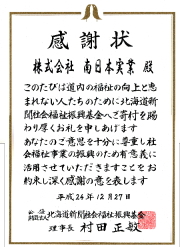 感謝状
株式会社 南日本実業 殿
このたびは道内の福祉の向上と恵
まれない人たちのために北海道新
聞社会福祉振興基金へご寄付を賜
わり厚くお礼を申しあげます
あなたのご意思を十分に尊重し社
会福祉事業の振興のため有意義に
活用させていただきますことをお
約束し深く感謝の意を表します
平成24年12月27日
北海道新聞社会福祉振興基金
理事長 村田正敏